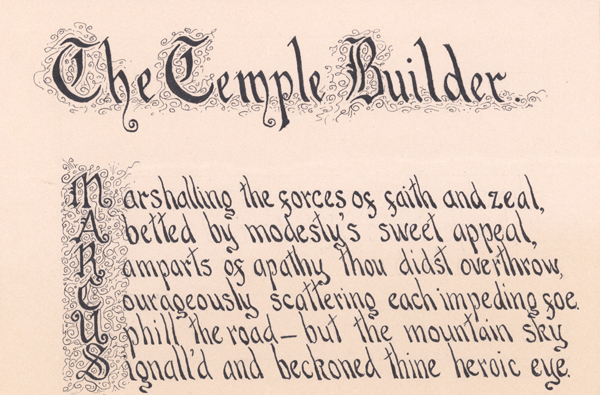 The Temple Builder.
Marshalling the forces of faith and zeal,
Abetted by modesty's sweet appeal,
Ramparts of apathy thou didst overthrow,
Courageously scattering each impeding foe.
Uphill the road — but the mountain sky
Signall'd and beckoned thine heroic eye.